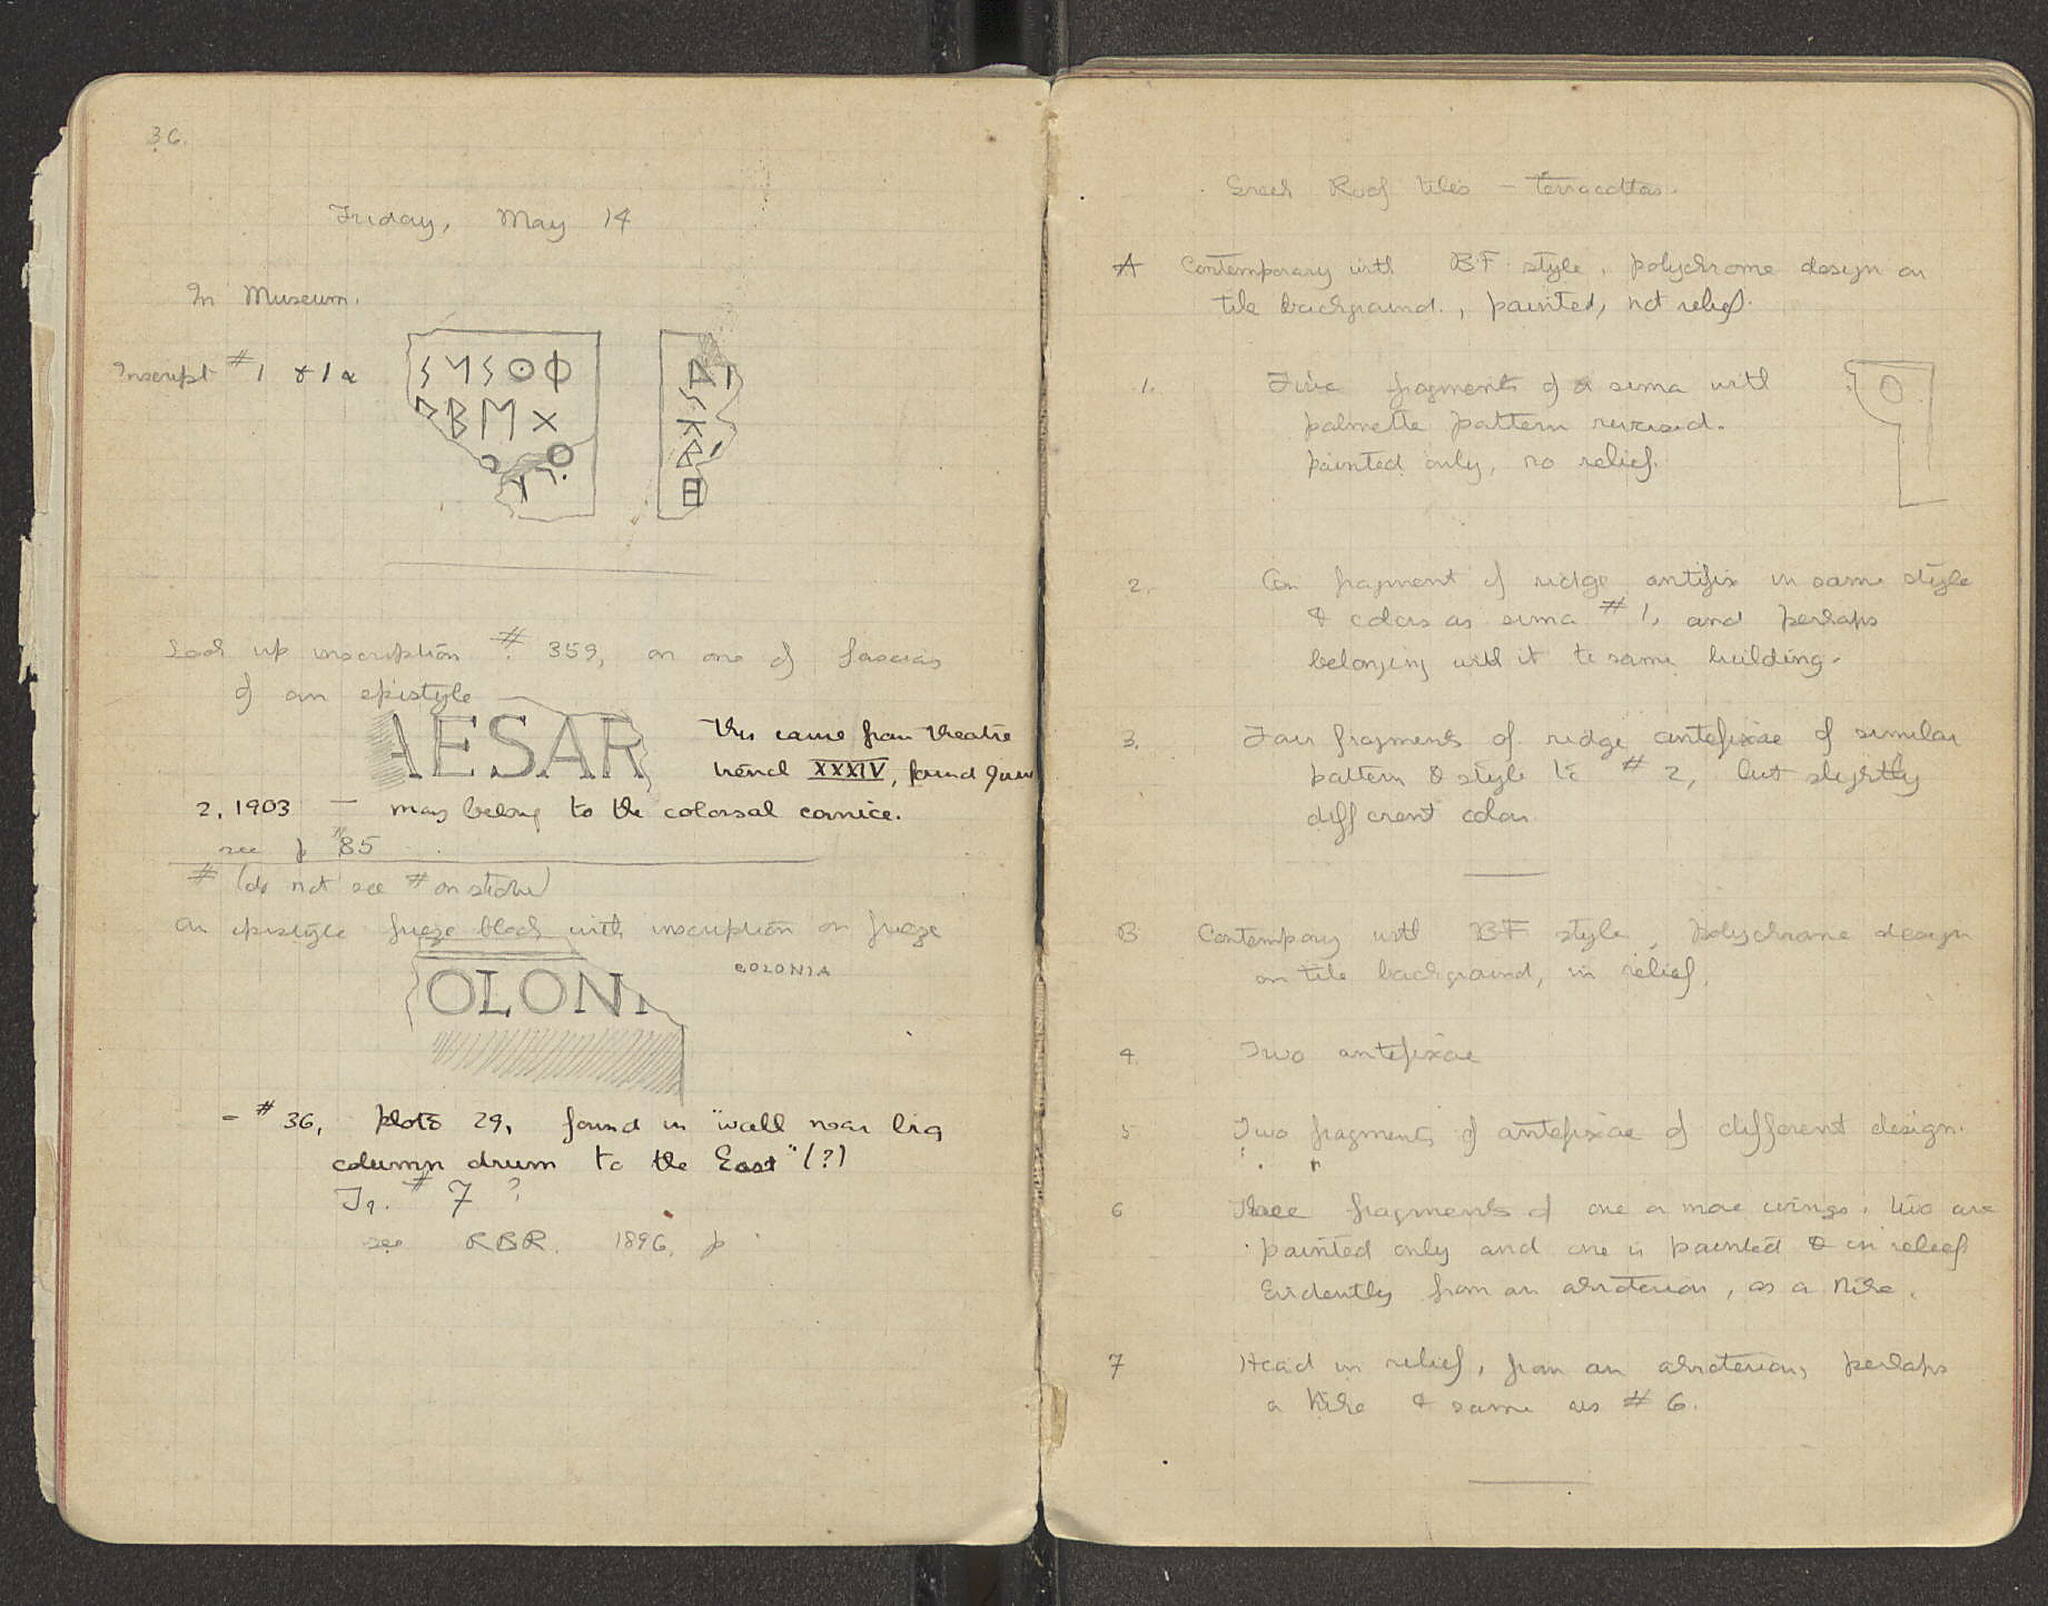 36.
Friday, May 14
In Museum.
Inscript #1 & 1a
Look up inscription # 359, on one of fascias
of an epistyle
AESAR
this came from theatre
trench XXXIV, found June
2, 1903 — may belong to the colossal cornice.
see p 85
# (do not see # on stone)
an epistyle frieze block with inscription on frieze
COLONIA
OLONI
- #36, photo 29, found in "wall near big
column drum to the East" (?)
Tr. # 7 ?
see RBR. 1896, p
Greek Roof tiles - terracottas.
A Contemporary with BF style, polychrome design on
tile background, painted, not relief.
1. Five fragments of a sima with
palmette pattern reversed.
painted only, no relief.
2. On fragment of ridge antifix in same style
& colors as sima #1, and perhaps
belonging with it to same building.
3. Four fragments of ridge antefixae of similar
pattern & style to #2, but slightly
different color
B Contempory with BF style, Polychrome design
on tile background, in relief.
4. Two antefixae
5 Two fragments of antefixae of different design.
6 Three fragments of one or more wings, two are
painted only and one is painted & in relief
Evidently from an akroterion, as a Nike.
7 Head in relief, from an akroterion, perhaps
a Nike & same as # 6.